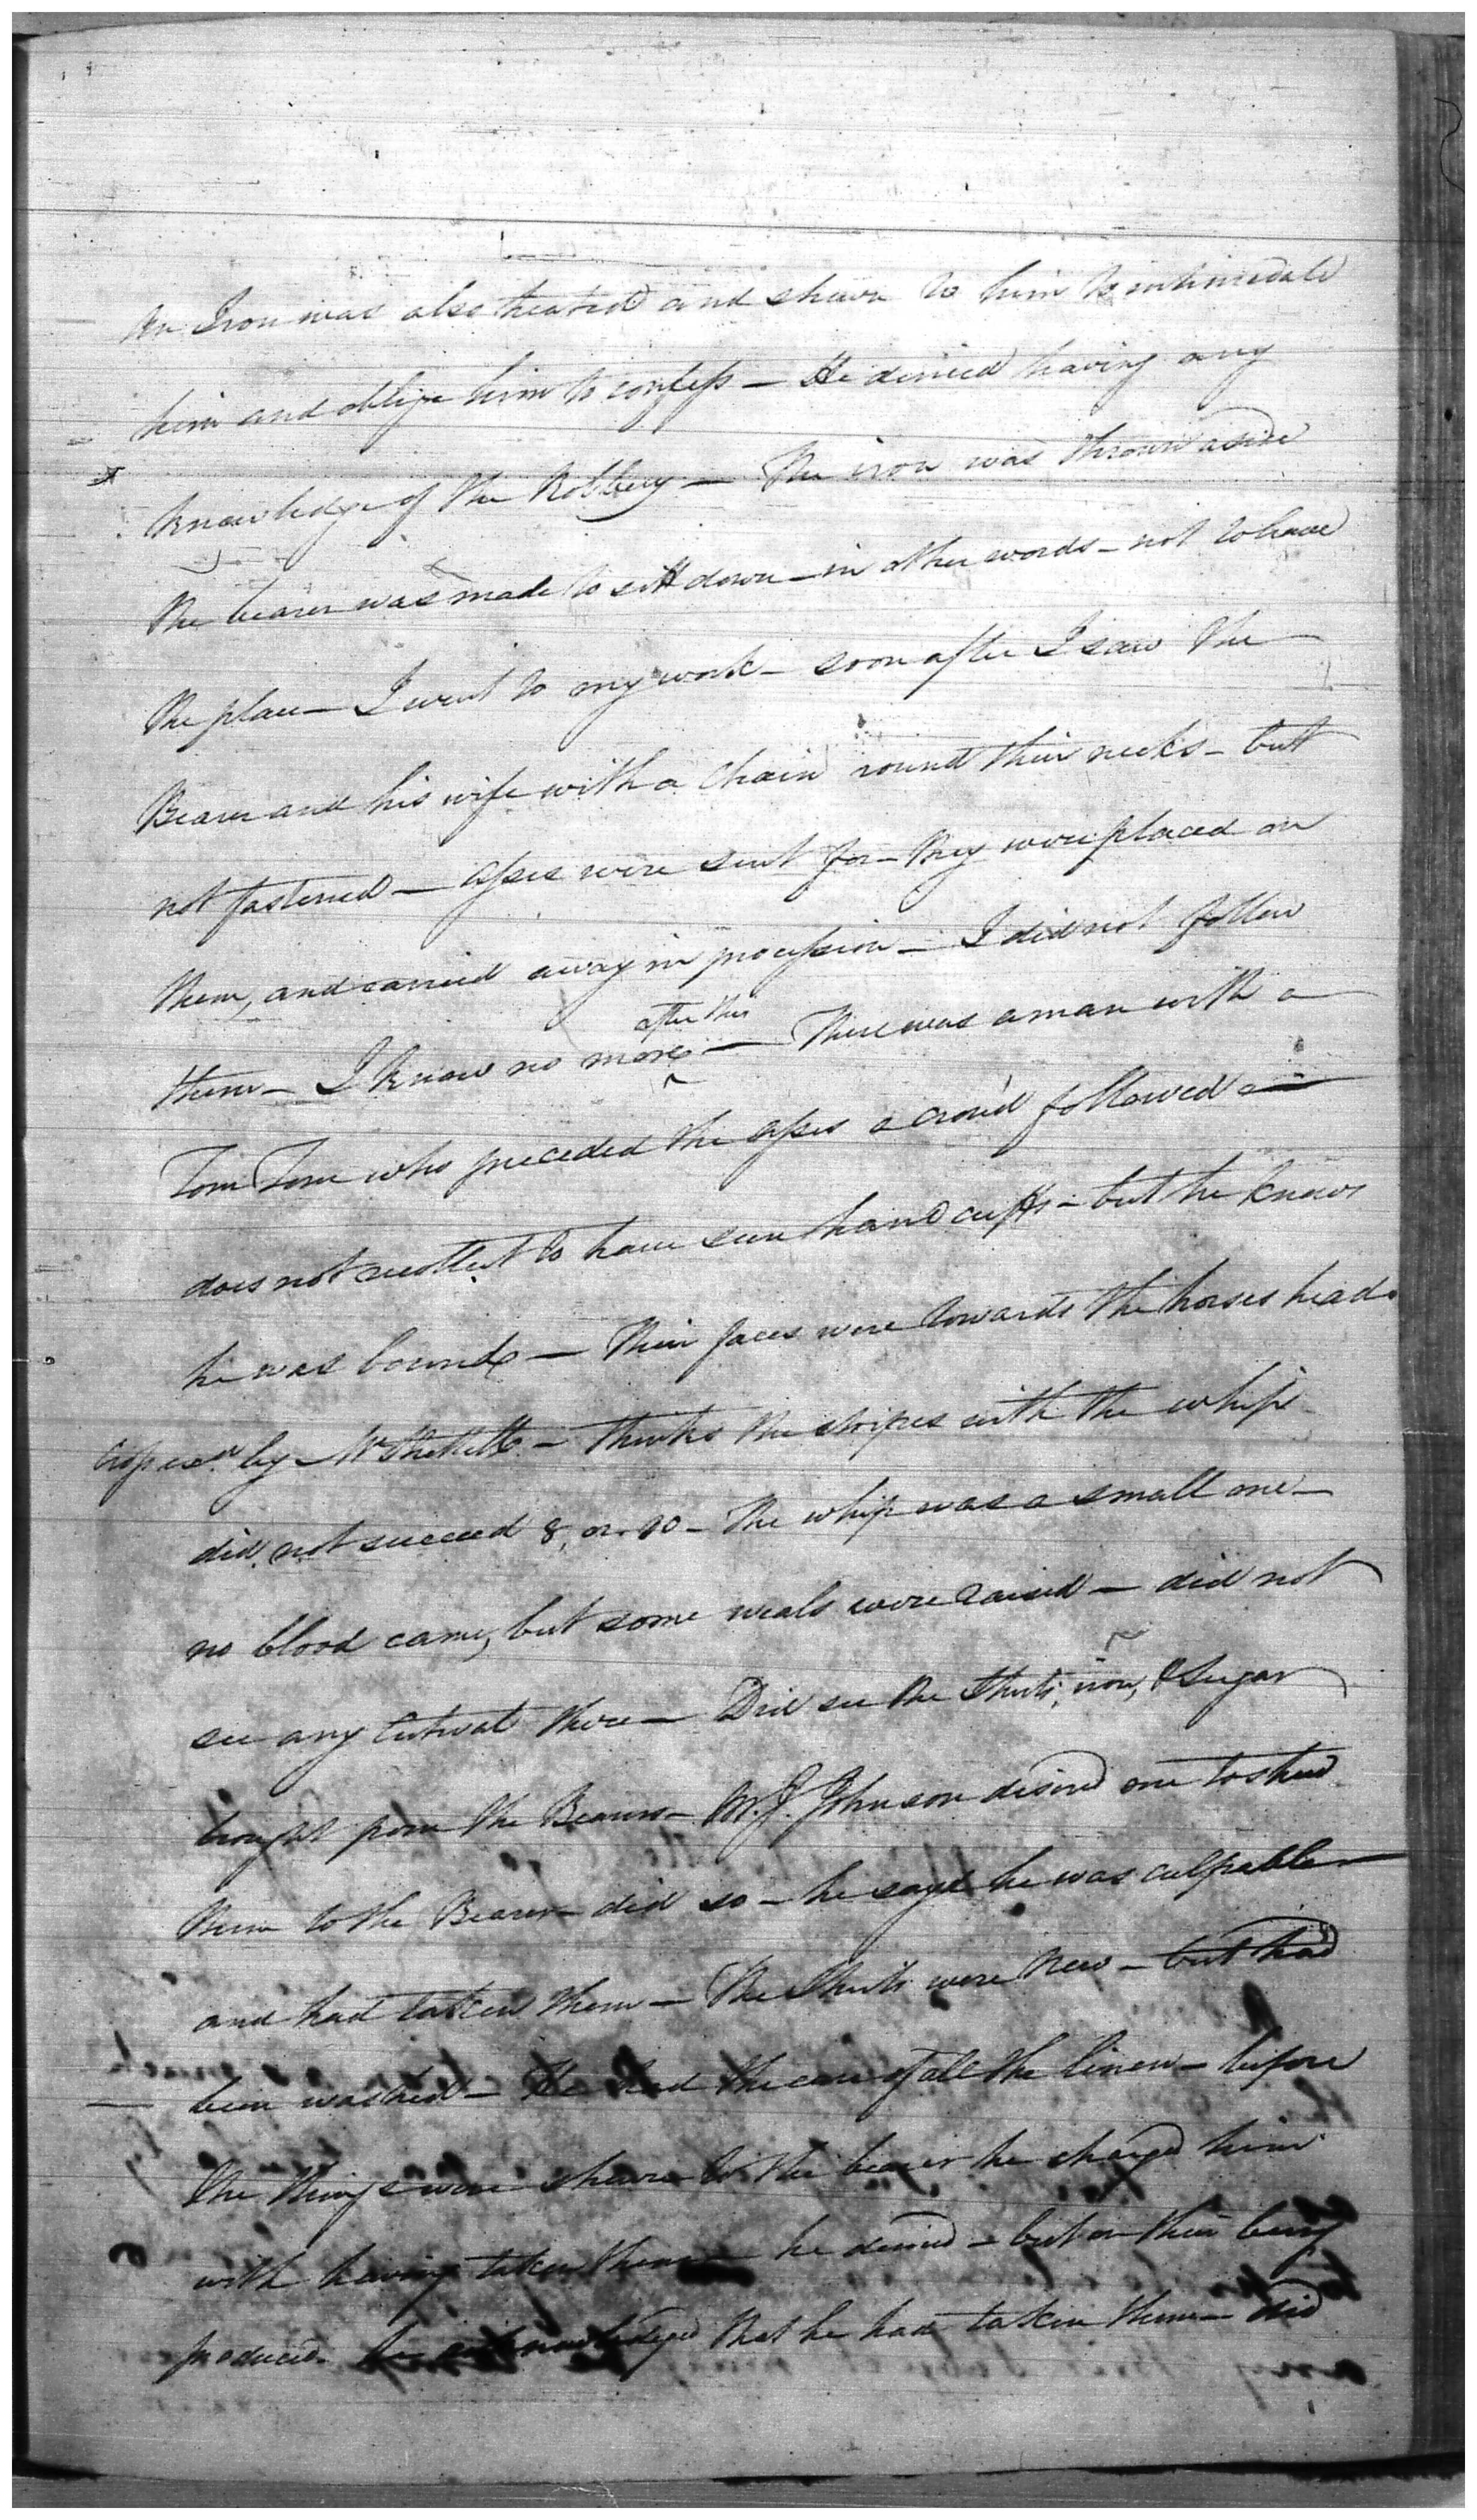 An Iron was also heated and shewn to him to intimidate
him and oblige him to confess – He denied having any
knowledge of the Robbery – The iron was thrown aside
The bearer was made to sitt down – in other words – not to leave
the place – I went to my work – soon after I saw the
Bearer and his wife with a Chain round their necks – but
not fastened – asses were sent for – they were placed on
them, and carried away in procession – I did not follow
them – I know no more after this – There was a man with a
Tom Tom who preceded the asses a croud followed –
does not recollect to have seen hand cuffs – but he knows
he was bound – Their faces were towards the horses head.
by Mr – thinks the stripes with the whip
did not succeed 8, or 10 – The whip was a small one –
no blood came, but some weals were raised – did not
see any Cutwal there – Did see the Shirts, iron, & Sugar
brought from the Bearers – Mr. J. Johnson desired me to shew
them to the Bearer – did so – he says he was culpable –
and had taken them – The Shirts were New – but had
been washed – He had the care of all the linen – before
the things were shewn to the bearer he charged him
with having taken them – he denied – but on their being
produced he acknowledged that he had taken them – did